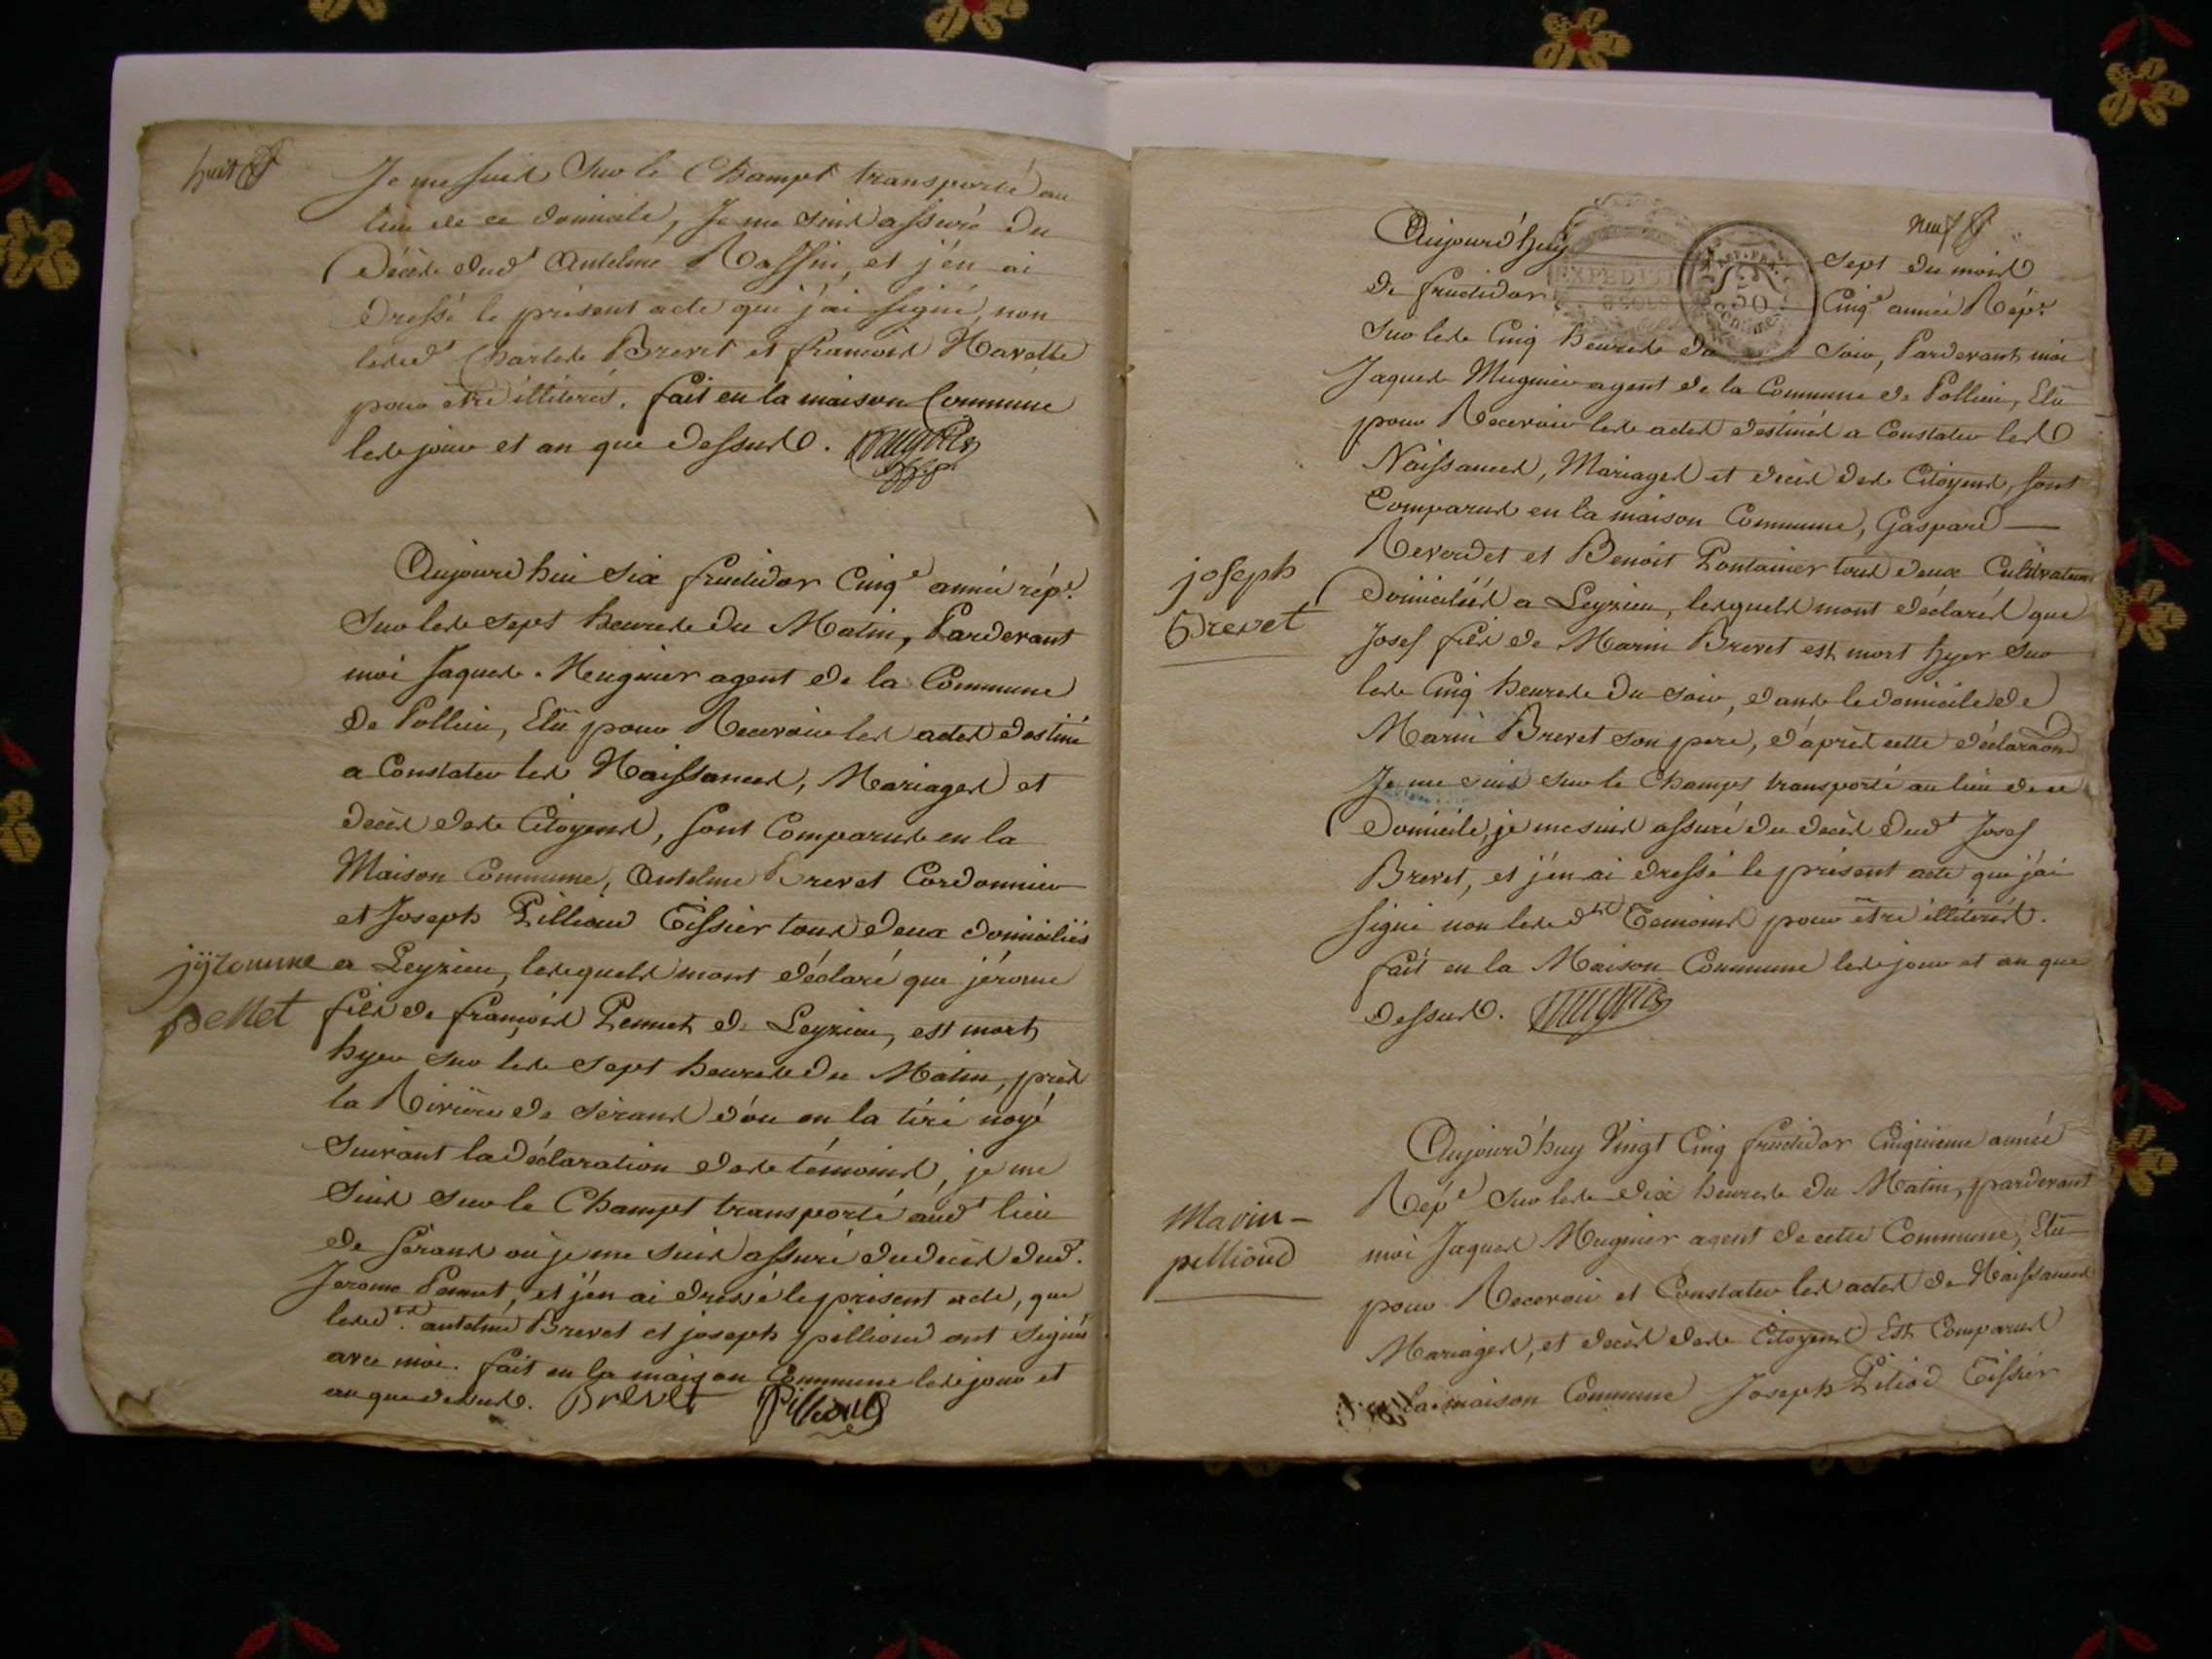 huit
Je me suis sur le Champt transporté au
lieu de ce domicile, Je me suis assuré du
Décès dud.t Antelme Rassin, et j'en ai
Dressé le présent acte que j'ai signé, non
lesd.t Charles Brevet et francois Navette
pour être illiterés. fait en la maison Commune
les jour et an que dessus.
Aujourd'hui six fructidor Cinq.e année rép.e
Sur les sept heures du Matin, Pardevant
moi Jaques Mugnier agent de la Commune
de Pollieu, Elû pour Recevoir les actes destiné
a Constater les Naissances, Mariages et
décès des Citoyens, sont Comparus en la
Maison Commune, Antelme Brevet Cordonnier
et Joseph Pillioud Tissier tous deux domiciliés
a Leyzieu, lesquels mont déclaré que jérome
fils de françois Pemet de Leyzieu, est mort
hyer sur les sept heures du Matin, près
la Rivière de Sérans d'ou on la tiré noyé
Suivant la déclaration des témoins, je me
Suis sur le Champt transporté aud.t lieu
de Sérans ou je me suis assuré du décès dud.t
Jerome Pemet, et j'en ai dressé le présent acte, que
lesd.ts antelme Brevet et joseph pillioud ont signés
avec moi. fait en la maison Commune les jour et
an que dessus. Brevet Pillioud
jyromme
pellet
neuf
Aujourd'huy sept du mois
de fructidor Cinq.e année Rép.e
EXPEDITION
REP. FRA.
50
centimes
Sur les Cinq heures du soir, Pardevant moi
Jaques Mugnier agent de la Commune de Pollieu, Elû
pour Recevoir les actes destinés a Constater les
Naissances, Mariages et décès des Citoyens, sont
Comparus en la maison Commune, Gaspard
Reverdet et Benoit Pontanier tous deux Cultivateurs
Domiciliés a Leyzieu, lesquels mont déclarés que
Josef fils de Marin Brevet est mort hyer sur
les Cinq heures du soir, dans le domicile de
Marin Brevet son pere, d'après cette déclaraon
Je me suis sur le Champt transporté au lieu de ce
Domicile, je me suis assuré du decès dud.t Josef
Brevet, et j'en ai dressé le présent acte que j'ai
signé non lesd.ts Temoins pour être illiterés.
fait en la Maison Commune les jour et an que
dessus.
joseph
Brevet
Aujourd'huy Vingt Cinq fructidor Cinquieme année
Rép.e Sur les dix heures du Matin, pardevant
moi Jaques Mugnier agent de cette Commune, Elû
pour Recevoir et Constater les actes de Naissances
Mariages, et decès des Citoyens Est Comparus
en la maison Commune Joseph Piliod Tissier
Marin
pellioud